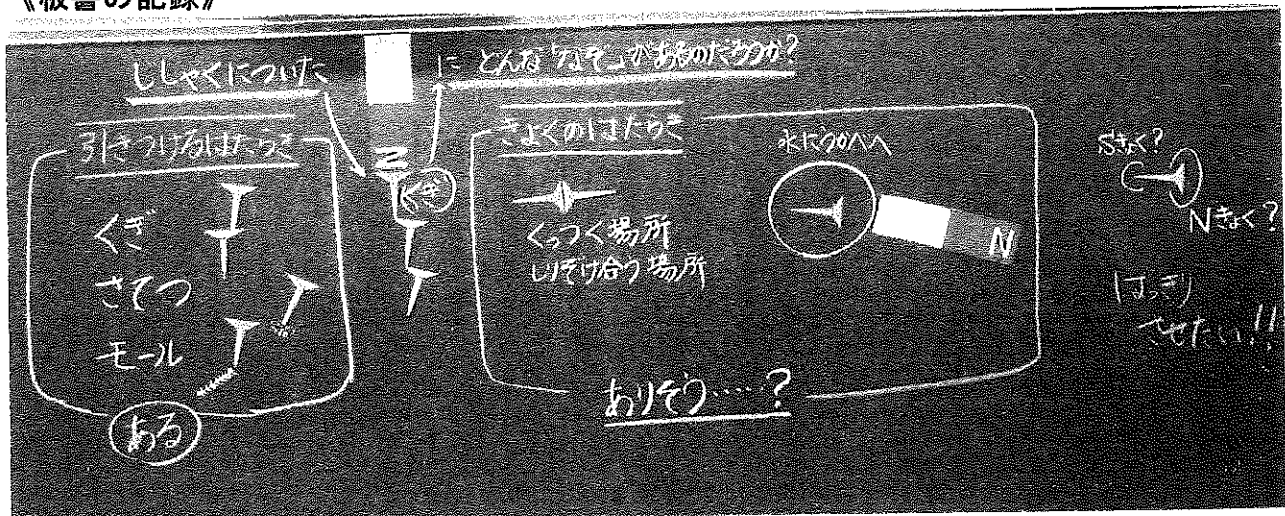 《板書の記録》
じしゃくについた
に どんな「なぞ」があるのだろうか?
引きつけるはたらき
くぎ
さてつ
モール
ある
N
くぎ
きょくのはたらき
くっつく場所
しりぞけ合う場所
水にうかべへ
N
ありそう……?
Sきょく?
Nきょく?
はっきり
させたい!!